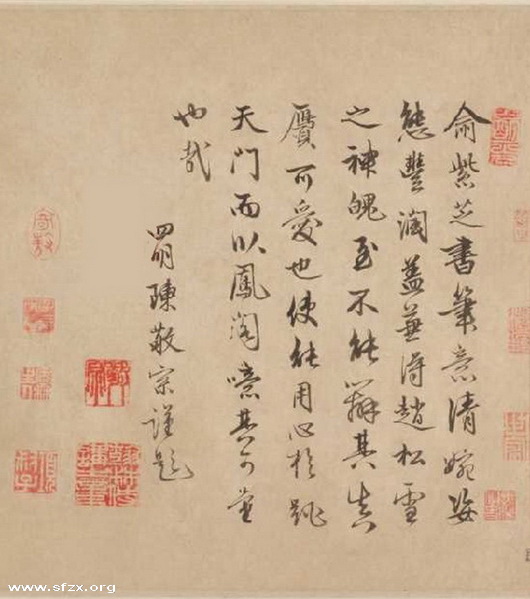 俞紫芝書筆意清婉姿
態豐潤蓋兼得趙松雪
之神魄至不能辨其真
贋可愛也使能用心於跳
天門而臥鳳閣噫其可量
也哉
四明陳敬宗謹題
www.sfzx.org